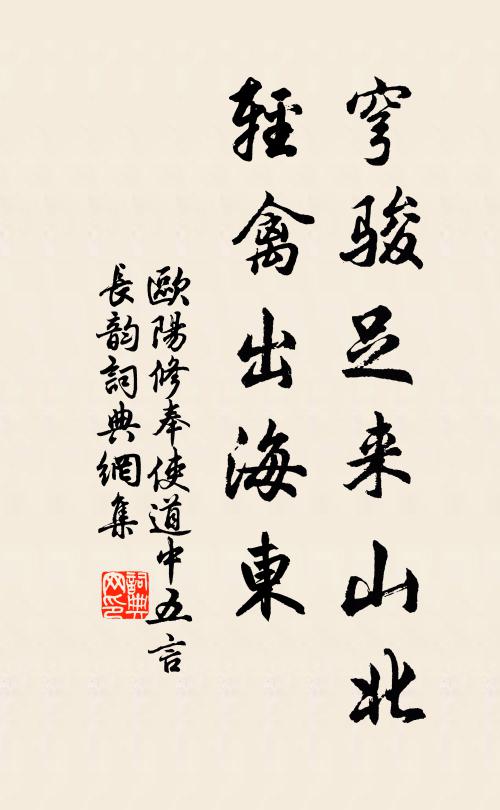 穹骏足来山北
輕禽出海東
歐陽修奉使道中五言
長韵詞典網集
詞典网印